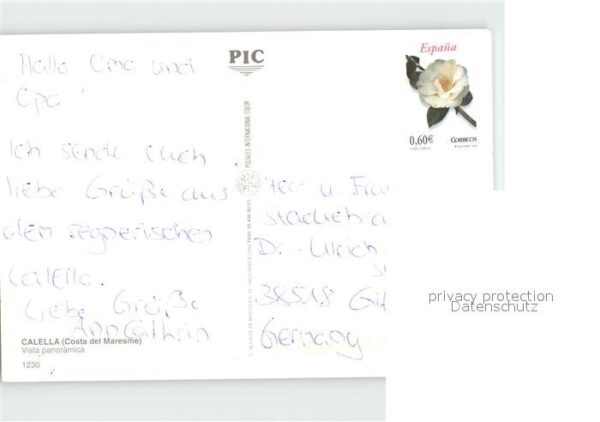 Hallo Oma und
Opa!
Ich sende Euch
liebe Grüße aus
dem regnerischen
Calella.
Liebe Grüße
AnnCathrin
CALELLA (Costa del Maresme)
Vista panorámica
1230
PIC
POSTALES INTERNACIONAL COLOR
España
0,60€
CORREOS
Herr u. Frau
Dr.-Ulrich-
38518 Gif
Germany
privacy protection
Datenschutz